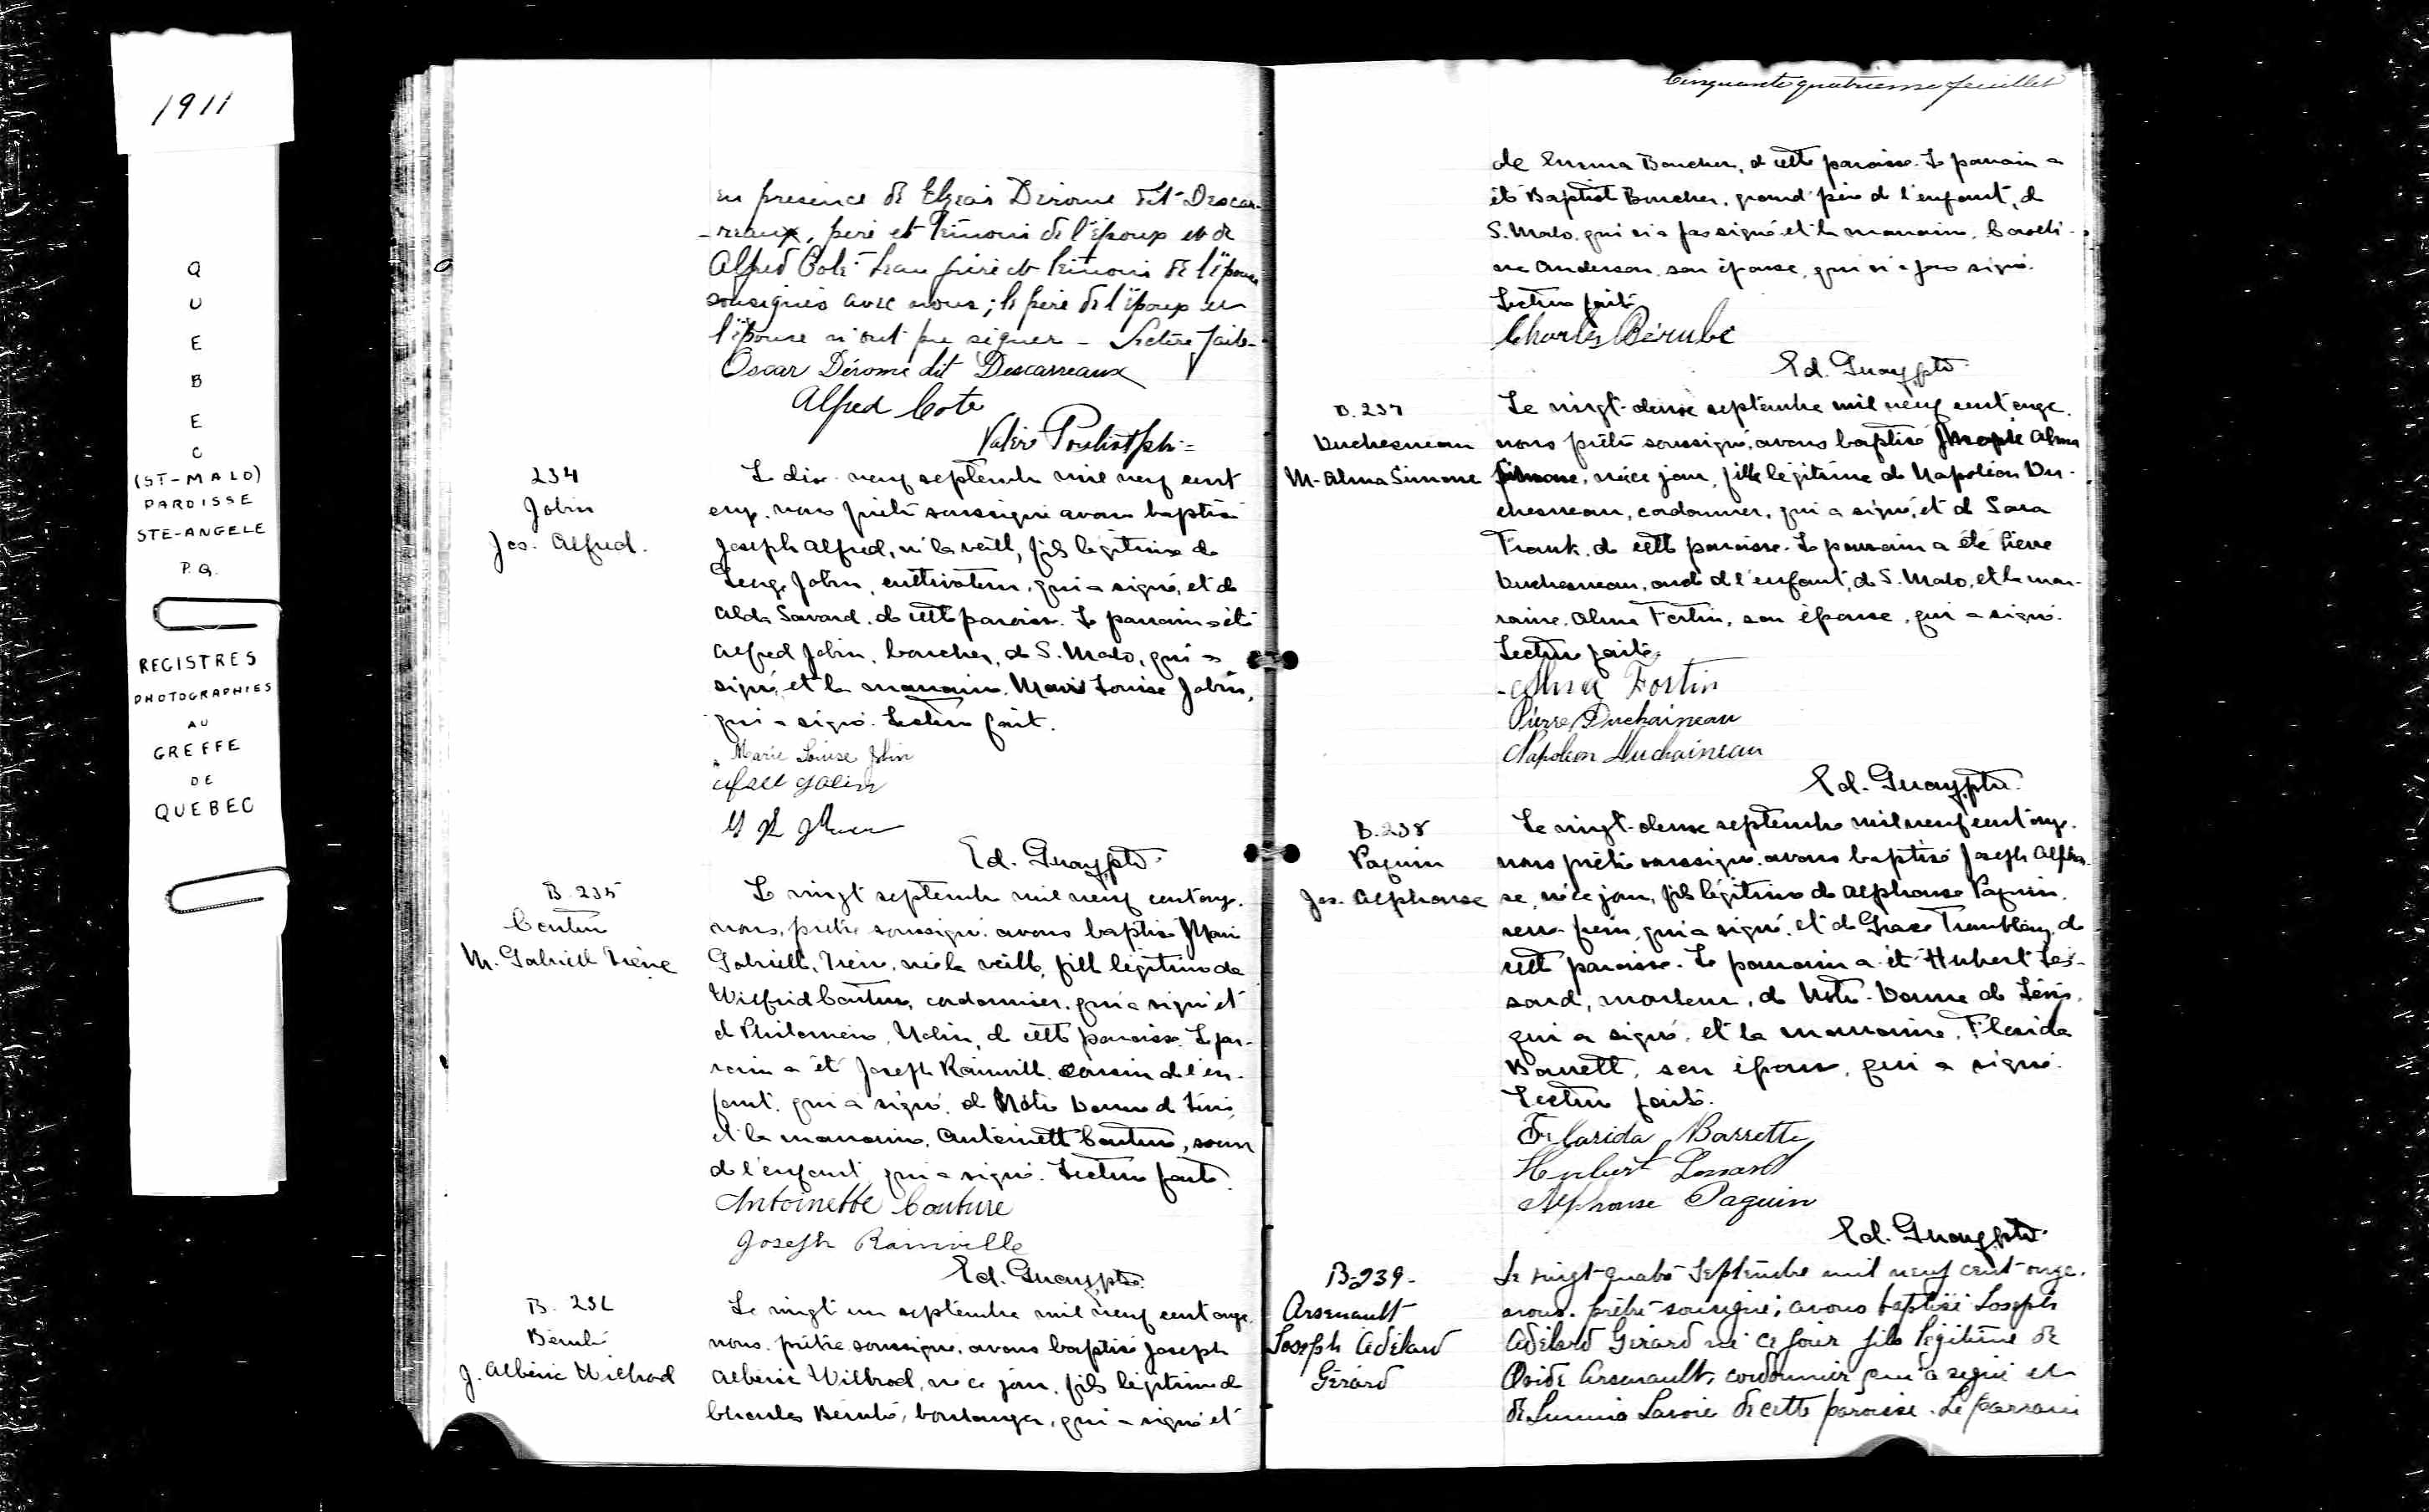 1911
Q
U
E
B
E
C
(ST-MALO)
PAROISSE
STE-ANGELE
P.Q.
REGISTRES
PHOTOGRAPHIES
AU
GREFFE
DE
QUEBEC
en presence de Elzear Dérome dit Descar-
-reaux, père et témoin de l'époux et de
Alfred Coté beau frère et témoin de l'épouse
soussignés avec nous; le père de l'époux et
l'épouse n'ont pu signer - Lecture faite-
Oscar Dérome dit Descarreaux
Alfred Cote
Valère Pouliot ptr=
234
Jobin
Jos. Alfred.
Le dix-neuf septembre mil neuf cent
onze, nous prêtre soussigné avons baptisé
Joseph Alfred, né la veille, fils légitime de
Jobin, cultivateur, qui a signé, et de
Alda Savard, de cette paroisse. Le parrain a été
Alfred Jobin, boucher, de S. Malo, qui a
signé, et la marraine, Marie Louise Jobin,
qui a signé. Lecture faite.
Marie Louise Jobin
Jobin
Ed. Guay ptre.
B. 235
Couture
M. Gabrielle Irène
Le vingt septembre mil neuf cent onze,
nous, prêtre soussigné, avons baptisé Marie
Gabrielle, Irène, née la veille, fille légitime de
Wilfrid Couture, cordonnier, qui a signé et
de Philomène Nolin, de cette paroisse. Le par-
rain a été Joseph Rainville, cousin de l'en-
fant, qui a signé, de Notre Dame de Lévis,
et la marraine, Antoinette Couture, soeur
de l'enfant qui a signé. Lecture faite.
Antoinette Couture
Joseph Rainville
Ed. Guay ptre.
B. 236
Bérubé
J. Albéric Wilbrod
Le vingt un septembre mil neuf cent onze
nous, prêtre soussigné, avons baptisé Joseph
Albéric Wilbrod, né ce jour, fils légitime de
Charles Bérubé, boulanger, qui a signé et
Cinquante quatrieme feuillet
de Boucher, de cette paroisse. Le parrain a
été Baptist Boucher, grand père de l'enfant, de
S. Malo, qui n'a pas signé et la marraine, Caroli-
ne Anderson, son épouse, qui n'a pas signé.
Lecture faite
Charles Bérubé
Ed. Guay ptre.
B. 237
Duchesneau
M-Alma Simone
Le vingt-deux septembre mil neuf cent onze.
nous prêtre soussigné, avons baptisé Alma
Simone, née ce jour, fille légitime de Napoléon Du-
chesneau, cordonnier, qui a signé, et de Sara
Frank, de cette paroisse. Le parrain a été Pierre
Duchesneau, oncle de l'enfant, de S. Malo, et la mar-
raine, Alma Fortin, son épouse, qui a signé.
Lecture faite.
Alma Fortin
Pierre Duchaineau
Napoleon Duchaineau
Ed. Guay, ptre.
B. 238
Paquin
Jos. Alphonse
Le vingt-deux septembre mil neuf cent onze.
nous prêtre soussigné, avons baptisé Joseph Alphon-
se, né ce jour, fils légitime de Alphonse Paquin,
serre-frein, qui a signé, et de Grace Tremblay, de
cette paroisse. Le parrain a été Hubert Les-
sard, mouleur, de Notre-Dame de Lévis,
qui a signé, et la marraine, Florida
Barrett, son épouse, qui a signé.
Lecture faite.
Florida Barrette
Hubert Lessard
Alphonse Paquin
Ed. Guay ptre.
B-239-
Arsenault
Joseph Adélard
Gérard
Le vingt-quatre Septembre mil neuf cent-onze.
nous, prêtre-soussigné, avons baptisé Joseph
Adélard Gérard né ce jour fils légitime de
Ovide Arsenault, cordonnier qui a signé et
de Lavoie de cette paroisse. Le parrain